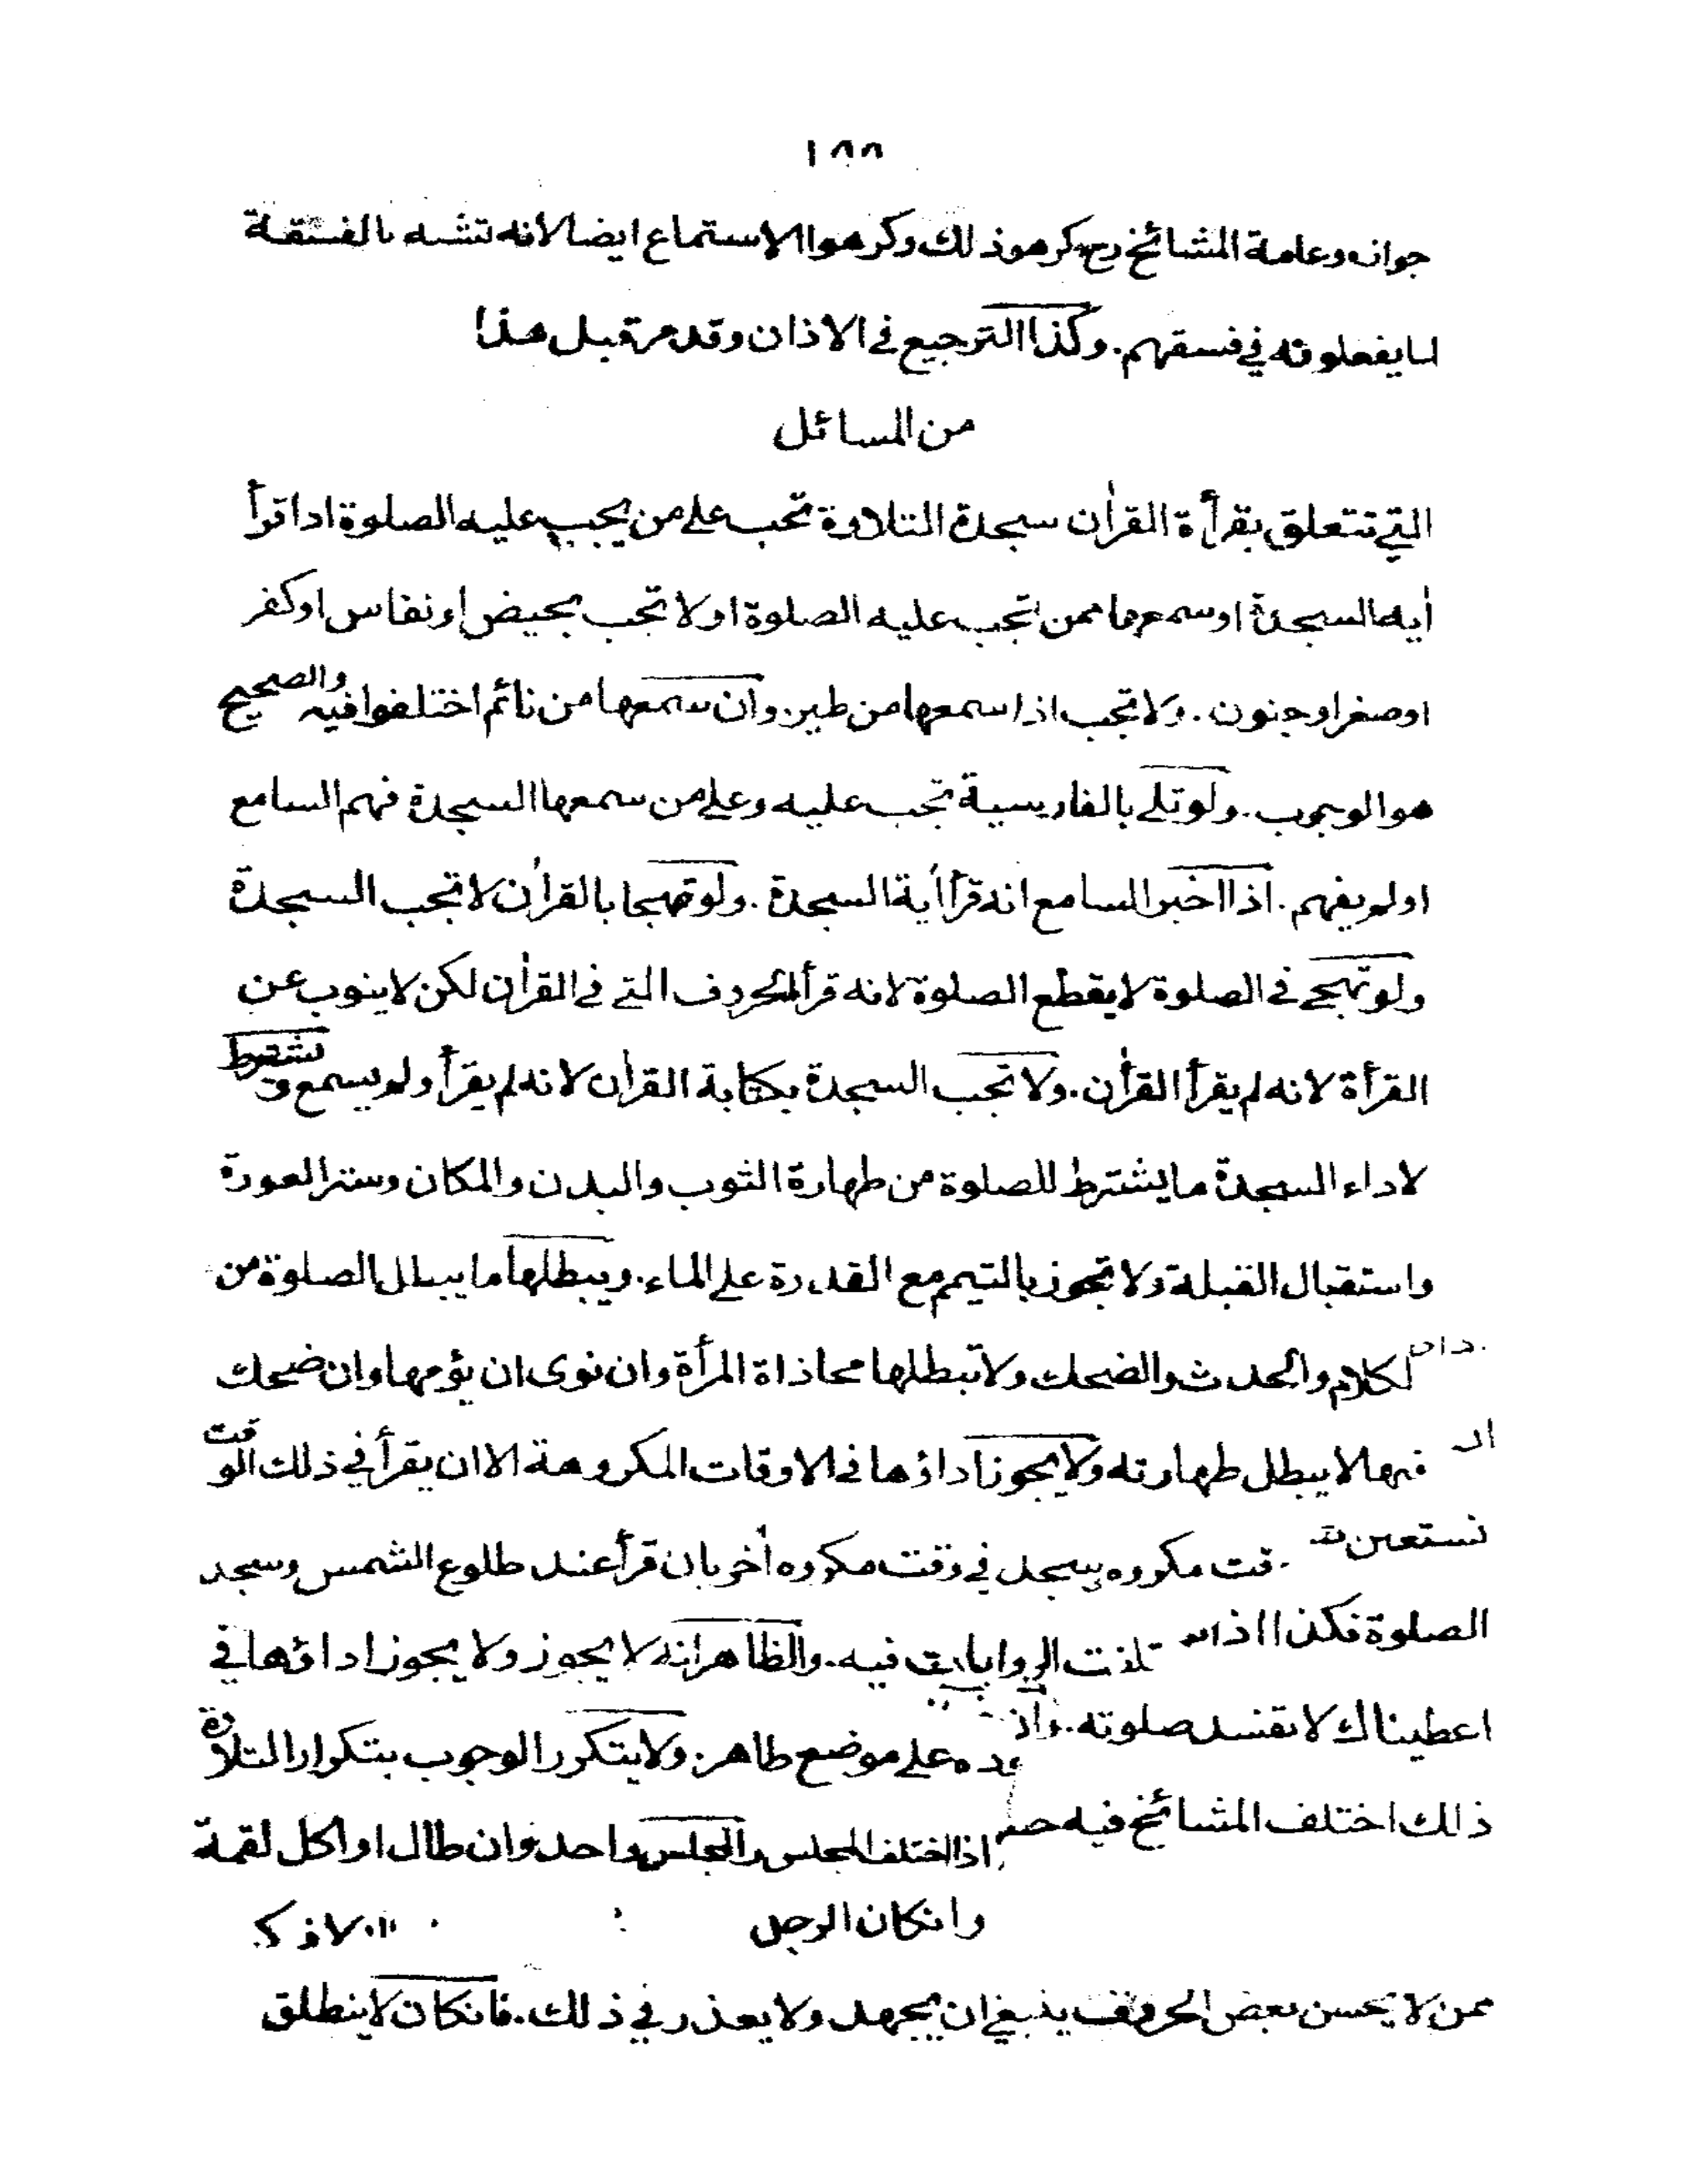 ١٨٨
جوازه وعامة المشائخ رح كرهوذلك وكرهوا الاستماع ايضا لانه تشبه بالفسقة
لما يفعلونه في فسقهم. وكذا الترجيع في الاذان وقد مر قبل هذا
من المسائل
التي تتعلق بقرأة القرأن سجدة التلاوة تجب على من يجب عليه الصلوة اذا قرأ
أية السجدة او سمعها ممن تجب عليه الصلوة او لا تجب بحيض او نفاس او كفر
او صغر او جنون. ولا تجب اذا سمعها من طير. وان سمعها من نائم اختلفوا فيه والصحيح
هو الوجوب. ولو تلي بالفارسية تجب عليه وعلى من سمعها السجدة فهم السامع
اولم يفهم. اذا اخبر السامع انه قرأ أية السجدة. ولو تهجا بالقرأن لا تجب السجدة
ولو تهجى في الصلوة لا يقطع الصلوة لانه قرأ الحروف التي في القرأن لكن لا ينوب عن
القرأة لانه لم يقرأ القرأن. ولا تجب السجدة بكتابة القرأن لانه لم يقرأ ولم يسمع و تشترط
لاداء السجدة ما يشترط للصلوة من طهارة الثوب والبدن والمكان وستر العورة
واستقبال القبلة ولا تجوز بالتيمم مع القدرة على الماء. ويبطلها ما يبطل الصلوة من
لكلام والحدث والضحك ولا تبطلها محاذاة المرأة وان نوى ان يؤمها وان ضحك
فيها لا يبطل طهارته ولا يجوز اداؤها في الاوقات المكروهة الا ان يقرأ في ذلك الوقت
نستعين
قت مكروه يسجد في وقت مكروه أخر بان قرأ عند طلوع الشمس وسجد
الصلوة فكذا اذا
تلفت الروايات فيه. والظاهر انه لا يجوز ولا يجوز اداؤها في
اعطيناك لا تفسد صلوته. وان
وده على موضع طاهر. ولا يتكرر الوجوب بتكرار التلاوة
ذلك اختلف المشائخ فيه
اذا اختلف المجلس والمجلس واحد وان طال او اكل لقمة
وانكان الرجل
ممن لا يحسن بعض الحروف ينبغي ان يجهد ولا يعذر في ذلك. فانكان لا ينطلق